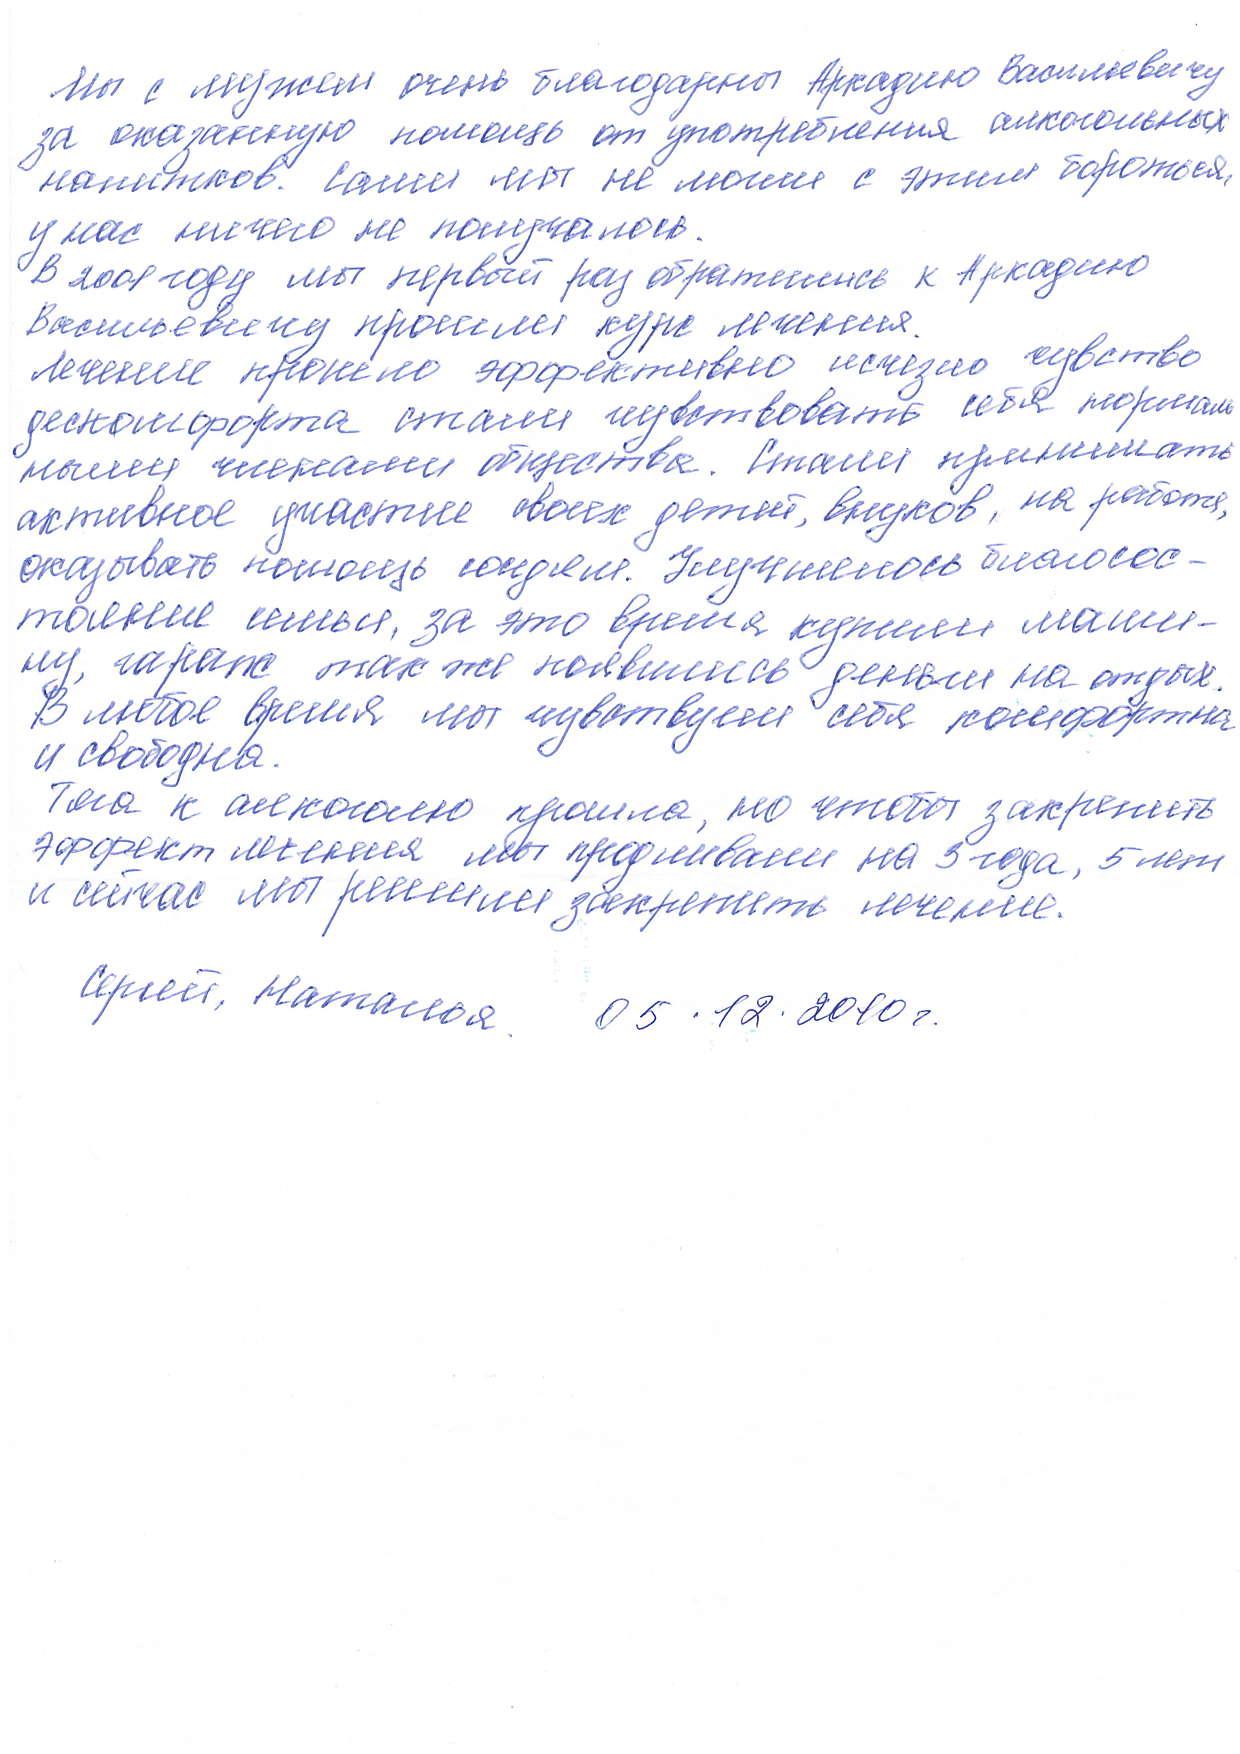 Мы с мужем очень благодарны Аркадию Васильевичу
за оказанную помощь от употребления алкогольных
напитков. Сами мы не могли с этим бороться,
у нас ничего не получалось.
В 2001 году мы первый раз обратились к Аркадию
Васильевичу прошли курс лечения.
Лечение прошло эффективно исчезло чувство
дескомфорта стали чувствовать себя нормаль
ными членами общества. Стали принимать
активное участие своих детей, внуков, на работе,
оказывать помощь людям. Улучшелось благосос-
тояние семьи, за это время купили маши-
ну, гараж так же появились деньги на отдых.
В любое время мы чувствуем себя комфортна
и свободна.
Тяга к алкоголю прошла, но чтобы закрепить
эффект лечения мы продливали на 3 года, 5 лет
и сейчас мы решили закрепить лечение.
Сергей, Наталья. 05.12.2010 г.